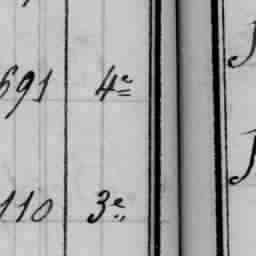 691 4e
110 3e